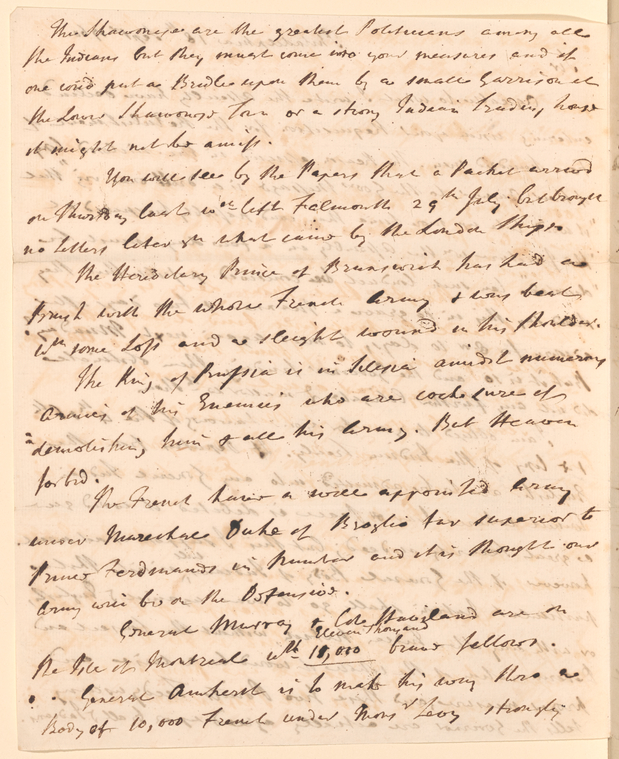 The Shawonese are the greatest Politicians among all
the Indians but they must come into your measures and if
one cou'd put a Bridle upon them by a small Garrison at
the Lower Shawonese Town or a strong Indian Trading house
it might not be amiss.
You will see by the Papers that a Packet arrived
on Thursday last wch left Falmouth 29th July but brought
no Letters later yn what came by the London Ships.
The Hereditary Prince of Brunswick has had a
Brush with the whole French Army & was beat
wth some Loss and a sleight wound in his shoulder.
The King of Prussia is in Silesia amidst numerous
Armies of his Enemies who are cock sure of
demolishing him & all his Army. But Heaven
forbid.
The French have a well appointed Army
under Marechal Duke of Broglio far superior to
Prince Ferdinands in Number and it is thought our
Army will be on the Defensive.
General Murray & Colo Haviland are on
the Isle of Montreal wth
Eleven Thousand
brave fellows.
General Amherst is to make his way thro a
Body of 10,000 French under Monsr Levy strongly